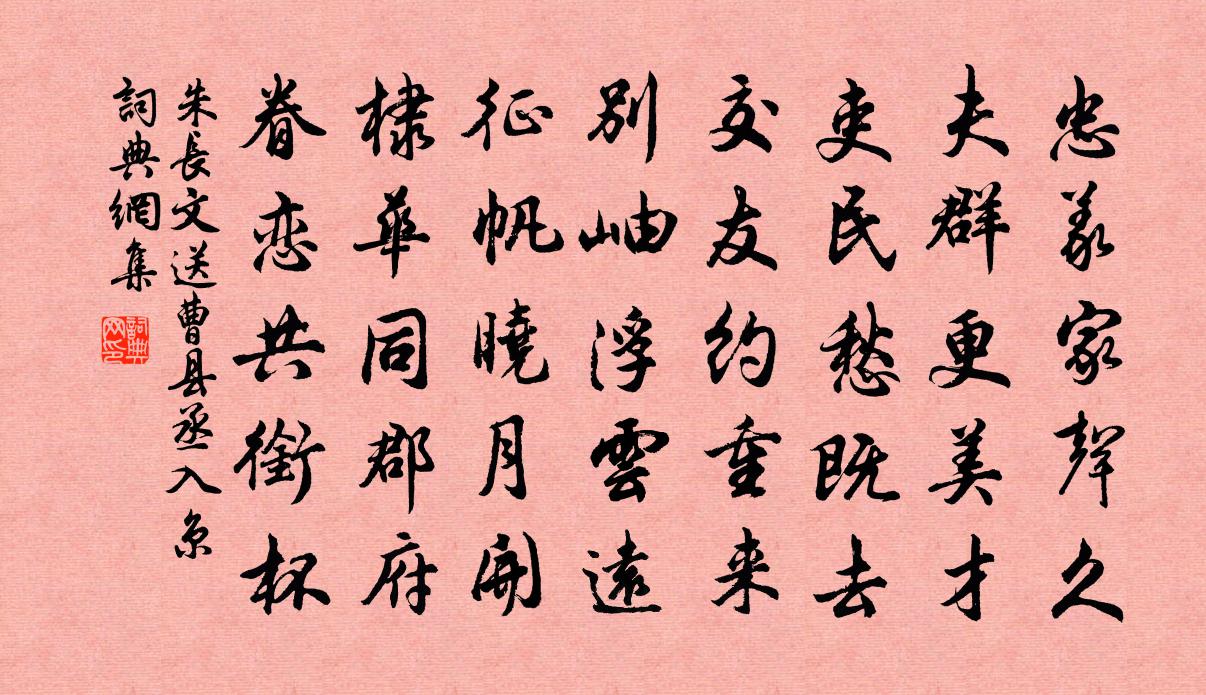 忠義家聲久
夫群更美才
吏民愁既去
交友约重来
別岫浮雲遠
征帆曉月開
棣華同郡府
眷恋共銜杯
朱長文送曹县丞入京
詞典網集
詞典网印